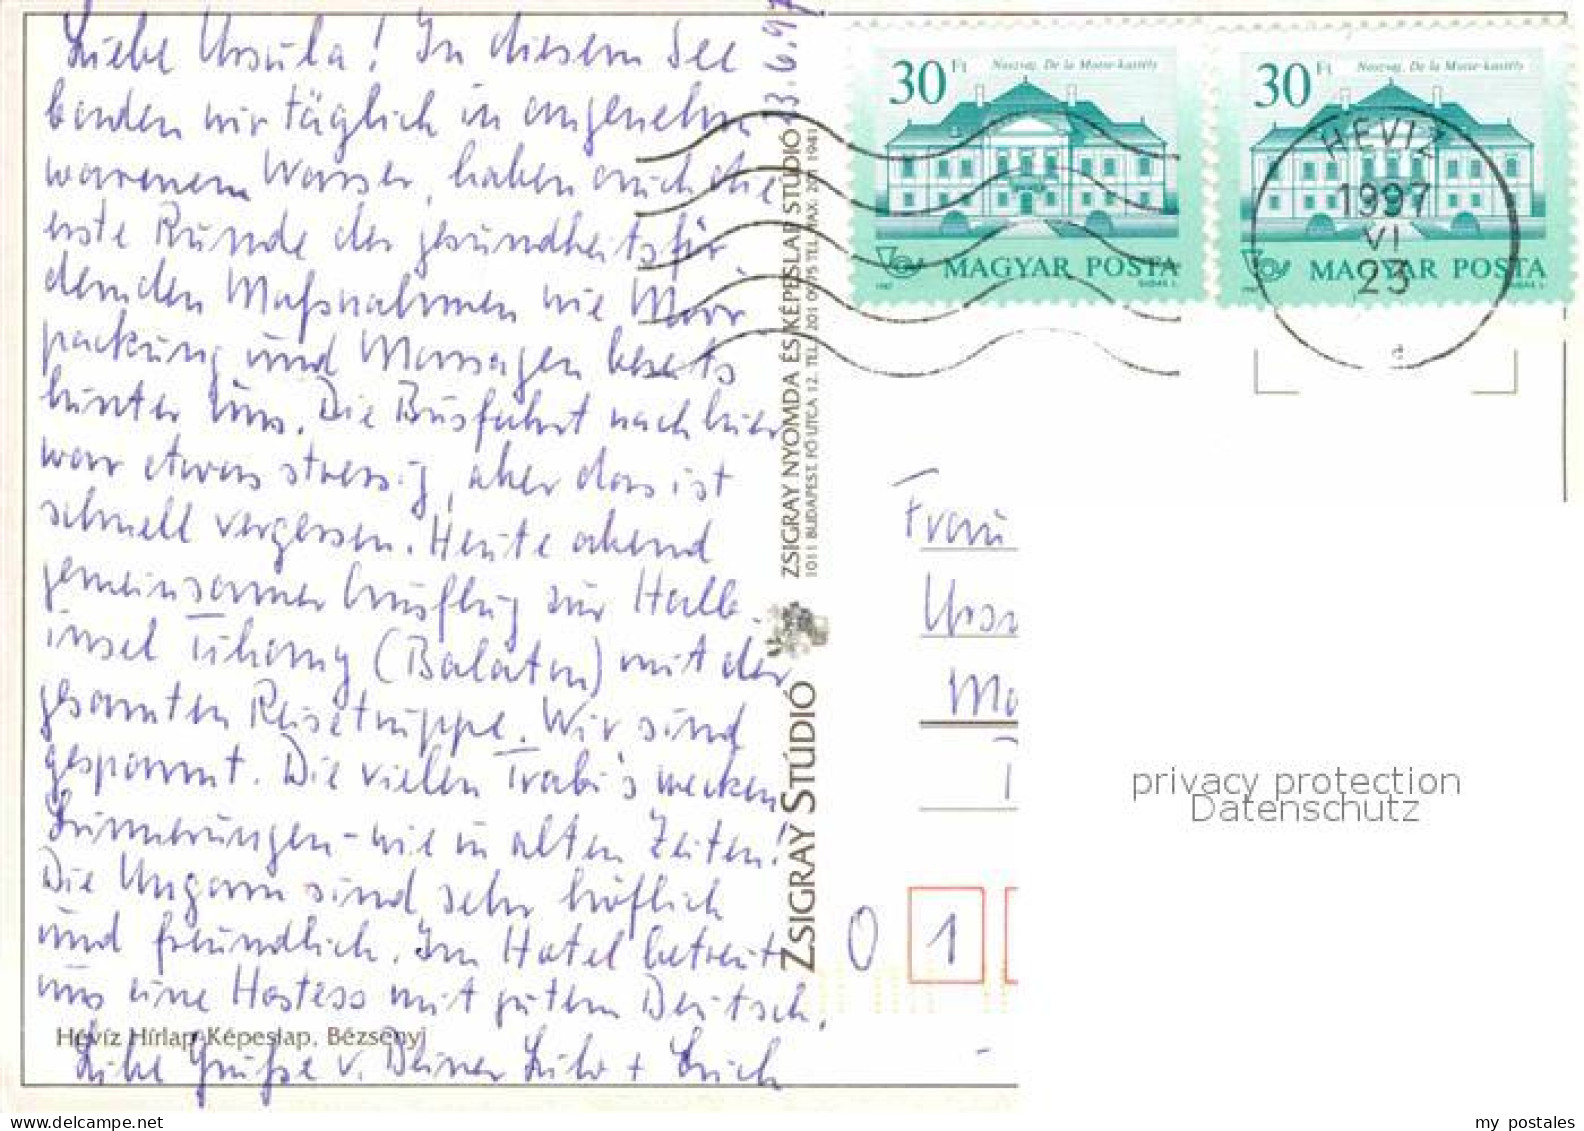 Liebe Ursula! In diesem See
baden wir täglich in angenehm
warmem Wasser, haben auch die
erste Runde der gesundheitsför-
dernden Maßnahmen wie Moor-
packung und Massagen bereits
hinter uns. Die Busfahrt nach hier
war etwas stressig, aber das ist
schnell vergessen. Heute abend
gemeinsamer Ausflug zur Halb-
insel Tihany (Balaton) mit der
gesamten Reisetruppe. Wir sind
gespannt. Die vielen Trabi's wecken
Erinnerungen - wie in alten Zeiten!
Die Ungarn sind sehr höflich
und freundlich. Im Hotel betreut
uns eine Hostess mit gutem Deutsch.
Hévíz Hírlap-Képeslap. Bézsenyi
Liebe Grüße v. Deiner Lilo + Erich
23.6.97
ZSIGRAY STÚDIÓ
ZSIGRAY NYOMDA ÉS KÉPESLAP STÚDIÓ
1011 BUDAPEST, FŐ UTCA 12. TEL. 201 0975 TEL./FAX: 201 1941
30 Ft
Noszvaj, De la Motte-kastély
MAGYAR POSTA
1987
30 Ft
Noszvaj, De la Motte-kastély
MAGYAR POSTA
1987
HÉVÍZ
1997
VI
23
d
Frau
0 1
privacy protection
Datenschutz
my postales